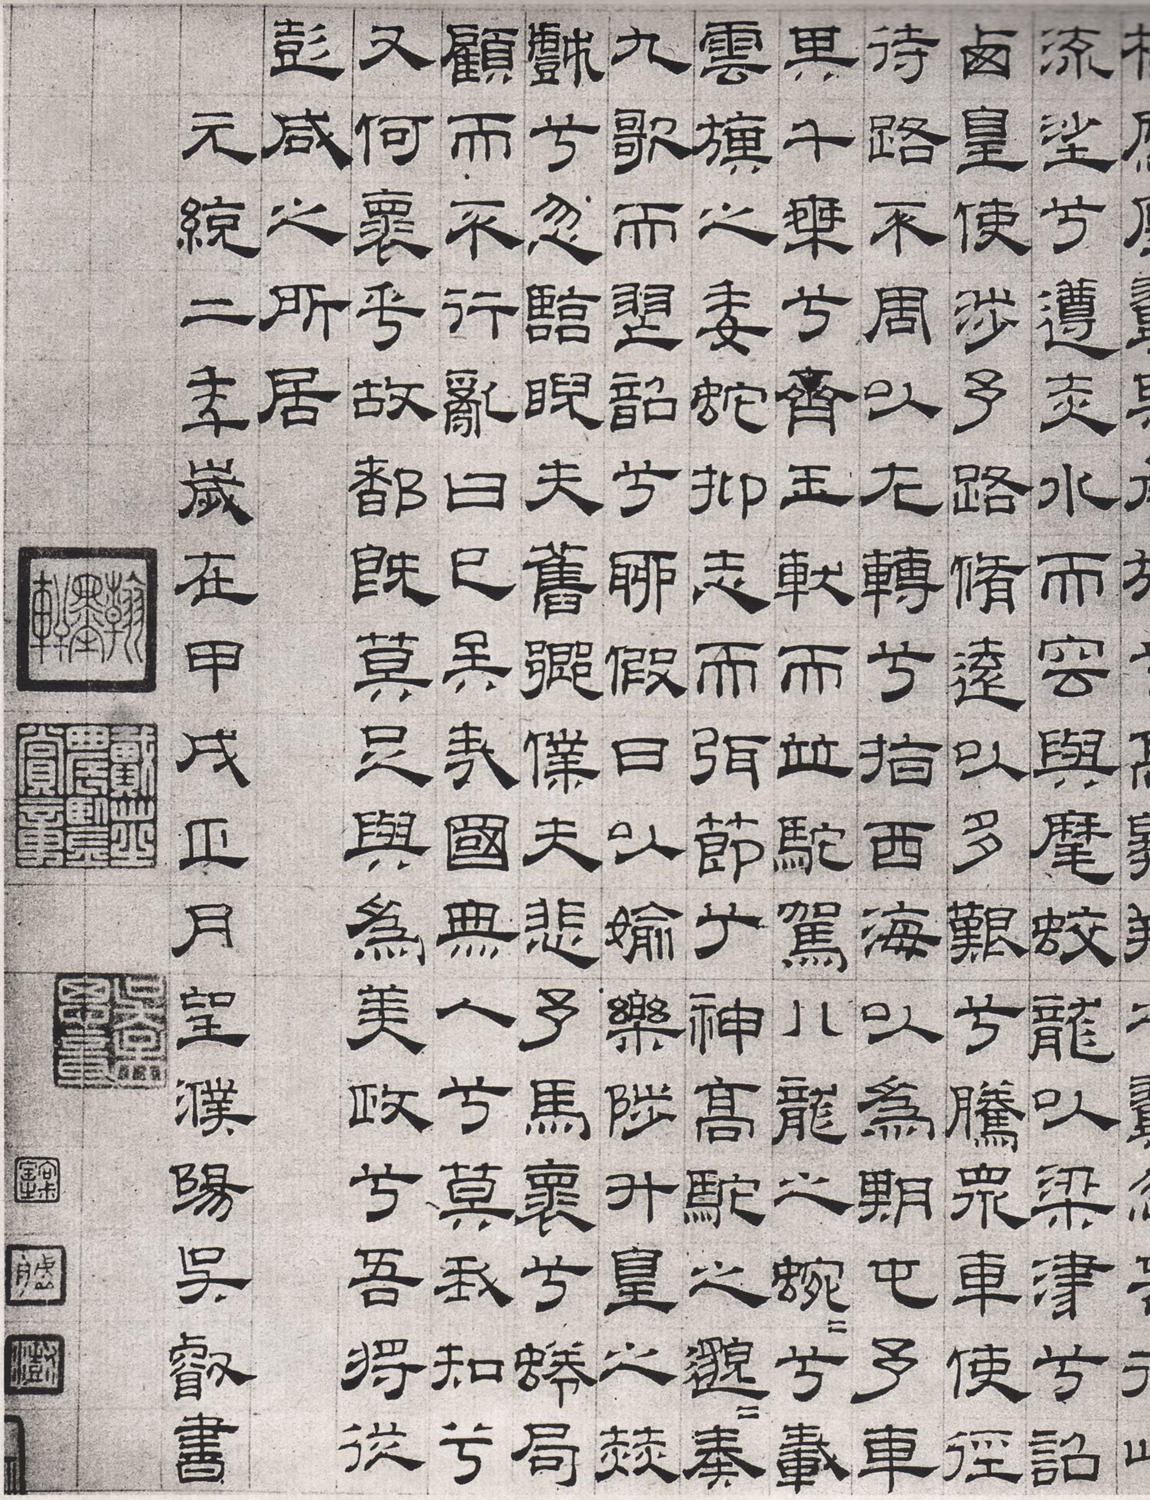 流沙兮遵赤水而容與麾蛟龍以梁津兮詔
西皇使涉予路脩遠以多艱兮騰眾車使徑
待路不周以左轉兮指西海以為期屯予車
其千乘兮齊玉軑而並馳駕八龍之蜿=兮載
雲旗之委蛇抑志而弭節兮神高馳之邈=奏
九歌而舞韶兮聊假日以媮樂陟升皇之赫
戲兮忽臨睨夫舊鄉僕夫悲予馬懷兮蜷局
顧而不行亂曰已矣哉國無人兮莫我知兮
又何懷乎故都既莫足與為美政兮吾將從
彭咸之所居
元統二年歲在甲戌正月望濮陽吳叡書
翰墨軒
戴芝農鑒賞章